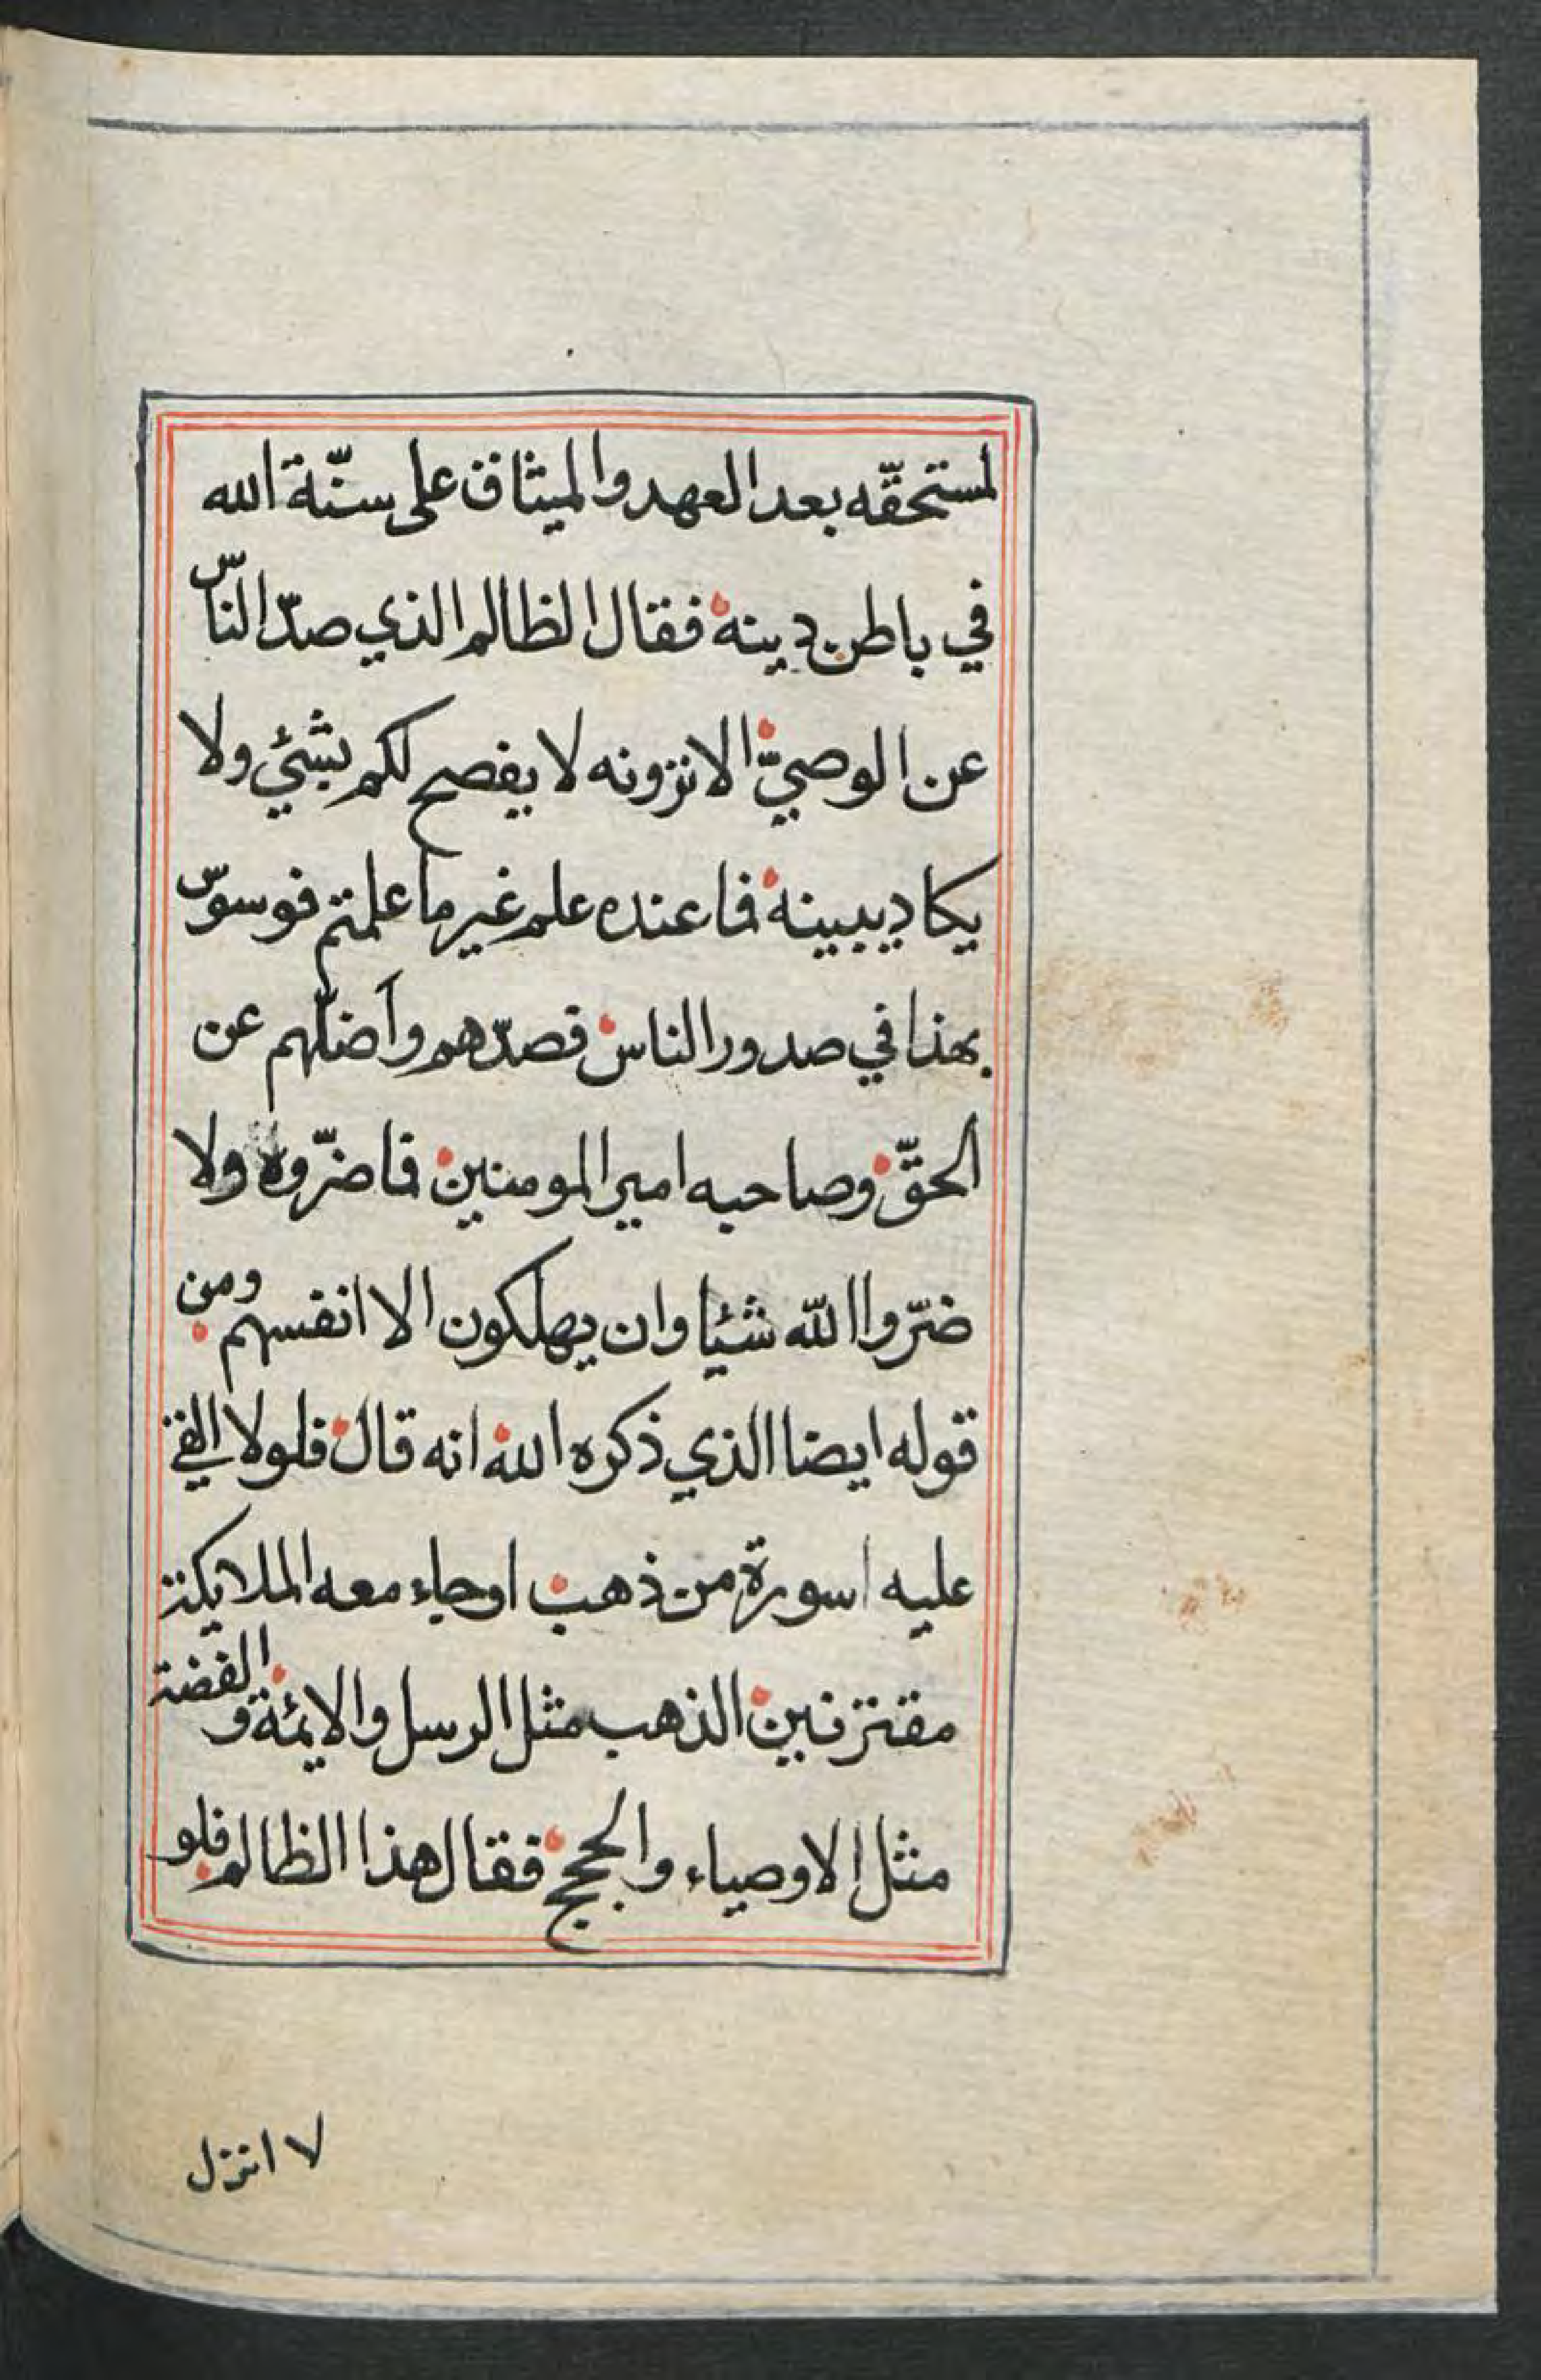 لمستحقّه بعد العهد والميثاق على سنّة الله
في باطن دينه فقال الظالم الذي صدّ الناس
عن الوصيّ الا تزونه لا يفصح لكم بشئي ولا
يكاد يبينه فما عنده علم غير ما علمتم فوسوس
بهذا في صدور الناس فصدّهم وأضلّهم عن
الحقّ وصاحبه امير المومنين فما ضرّوه ولا
ضرّوا الله شئيا وان يهلكون الا انفسهم ومن
قوله ايضا الذي ذكره الله انه قال فلولا القي
عليه اسورة من ذهب اوجاء معه الملايكة
مقترنين الذهب مثل الرسل والايمّة والفضة
مثل الاوصياء والحجج فقال هذا الظالم فلو
لا انزل